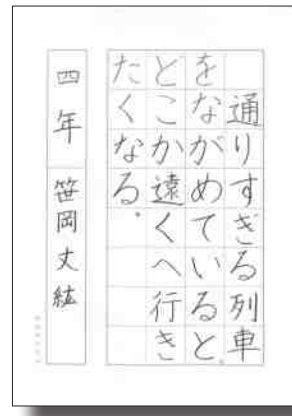 通りすぎる列車
をながめていると、
どこか遠くへ行き
たくなる。
四年 笹岡丈紘